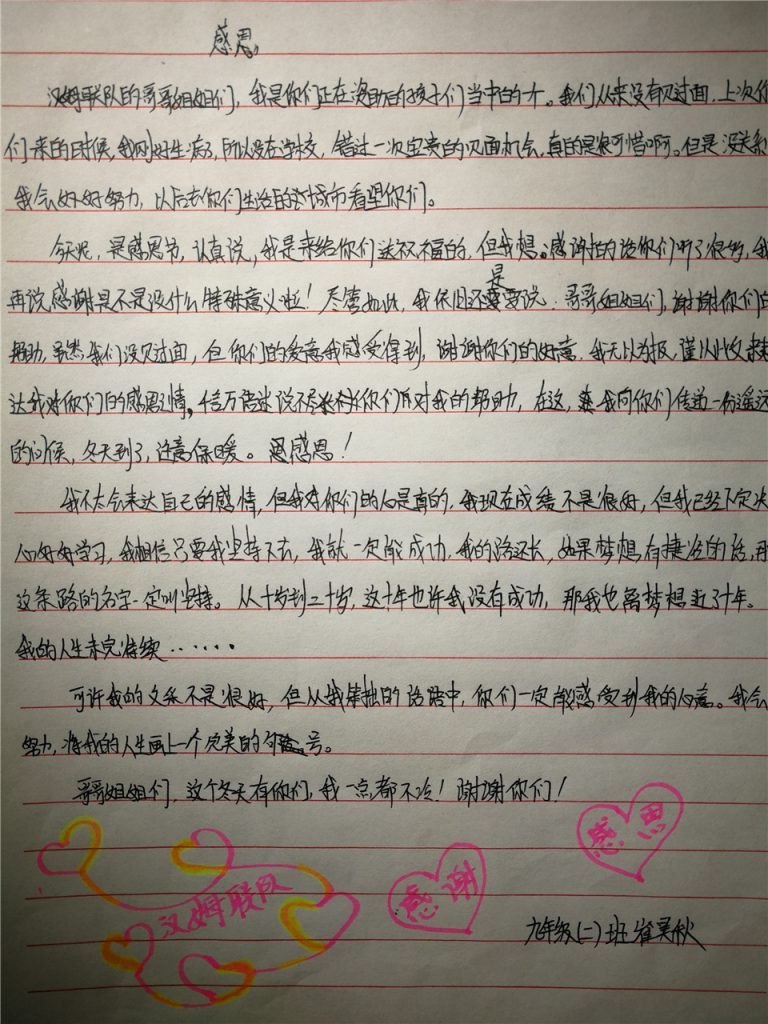 感恩
汉姆联队的哥哥姐姐们，我是你们正在资助的孩子们当中的一个。我们从来没有见过面，上次你
们来的时候，我刚好生病了，所以没在学校，错过一次宝贵的见面机会，真的是很可惜啊。但是没关系
我会好好努力，以后去你们生活的城市看望你们。
今天呢，是感恩节，认真说，我是来给你们送祝福的，但我想感谢的话你们听了很多，我
再说感谢是不是没什么特殊意义啦！尽管如此，我依旧还是要说：哥哥姐姐们，谢谢你们的
帮助，虽然我们没见过面，但你们的爱意我感受得到，谢谢你们的好意，我无以为报，谨以此文来表
达我对你们的感恩之情，千言万语说不尽你们对我的帮助，在这，我向你们传递一份遥远
的问候，冬天到了，注意保暖。感恩！
我不太会表达自己的感情，但我对你们的心是真的，我现在成绩不是很好，但我已经下定决
心好好学习，我相信只要我坚持下去，我就一定能成功，我的路还长，如果梦想有捷径的话，那
这条路的名字一定叫坚持。从十岁到二十岁，这十年也许我没有成功，那我也离梦想近了十年。
我的人生未完待续……
可许我的文采不是很好，但从我笨拙的话语中，你们一定能感受到我的心意。我会
努力，将我的人生画上一个完美的句号。
哥哥姐姐们，这个冬天有你们，我一点都不冷！谢谢你们！
感恩
感谢
汉姆联队
九年级(二)班 崔昊秋